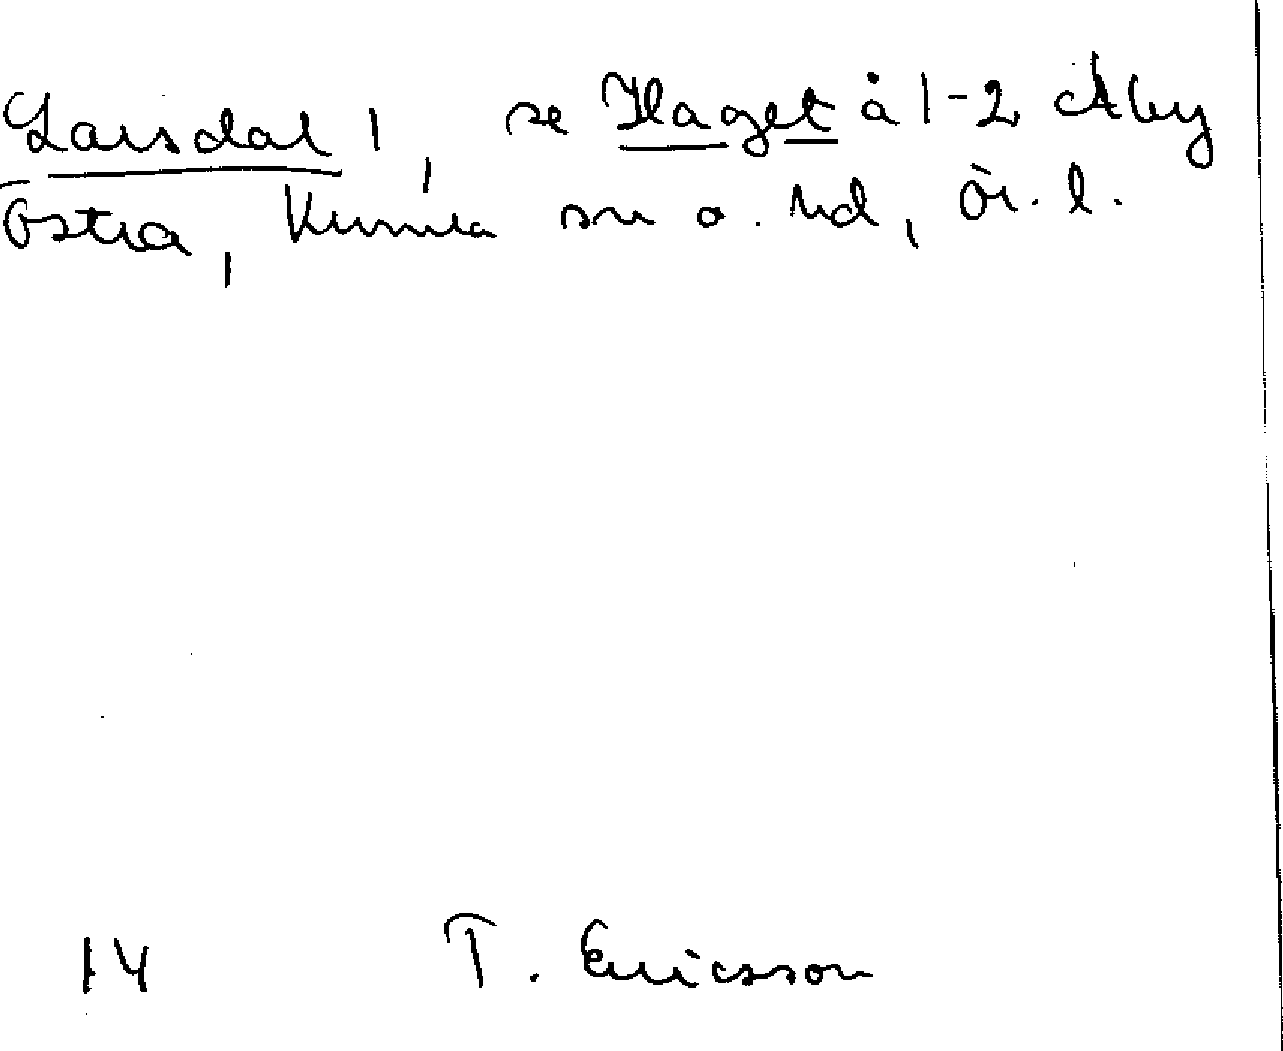 Larsdal 1, se Haget å 1-2 Åby
Östra, Kumla sn o. hd, Ör. l.
14 T. Ericsson